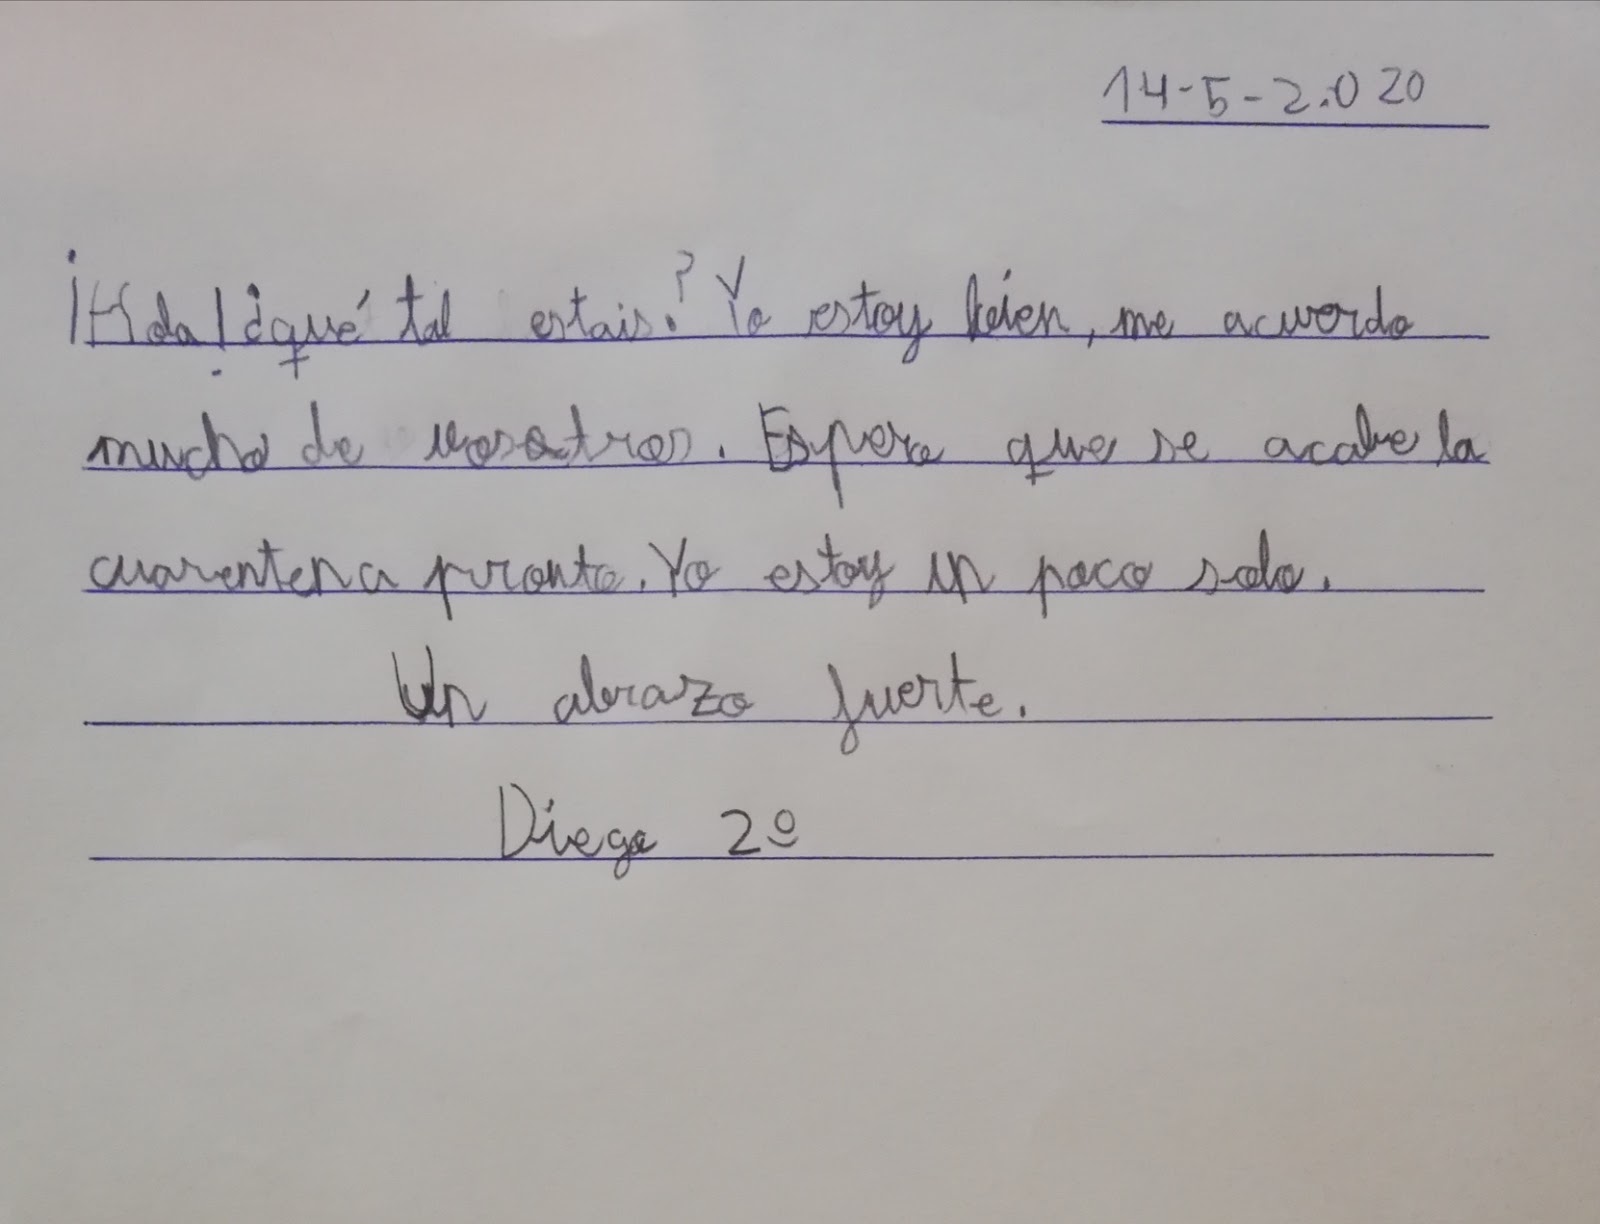 14-5-2.020
¡Hola! ¿qué tal estais? Yo estoy bien, me acuerdo
mucho de vosotros. Espero que se acabe la
cuarentena pronto. Yo estoy un poco solo.
Un abrazo fuerte.
Diego 2º